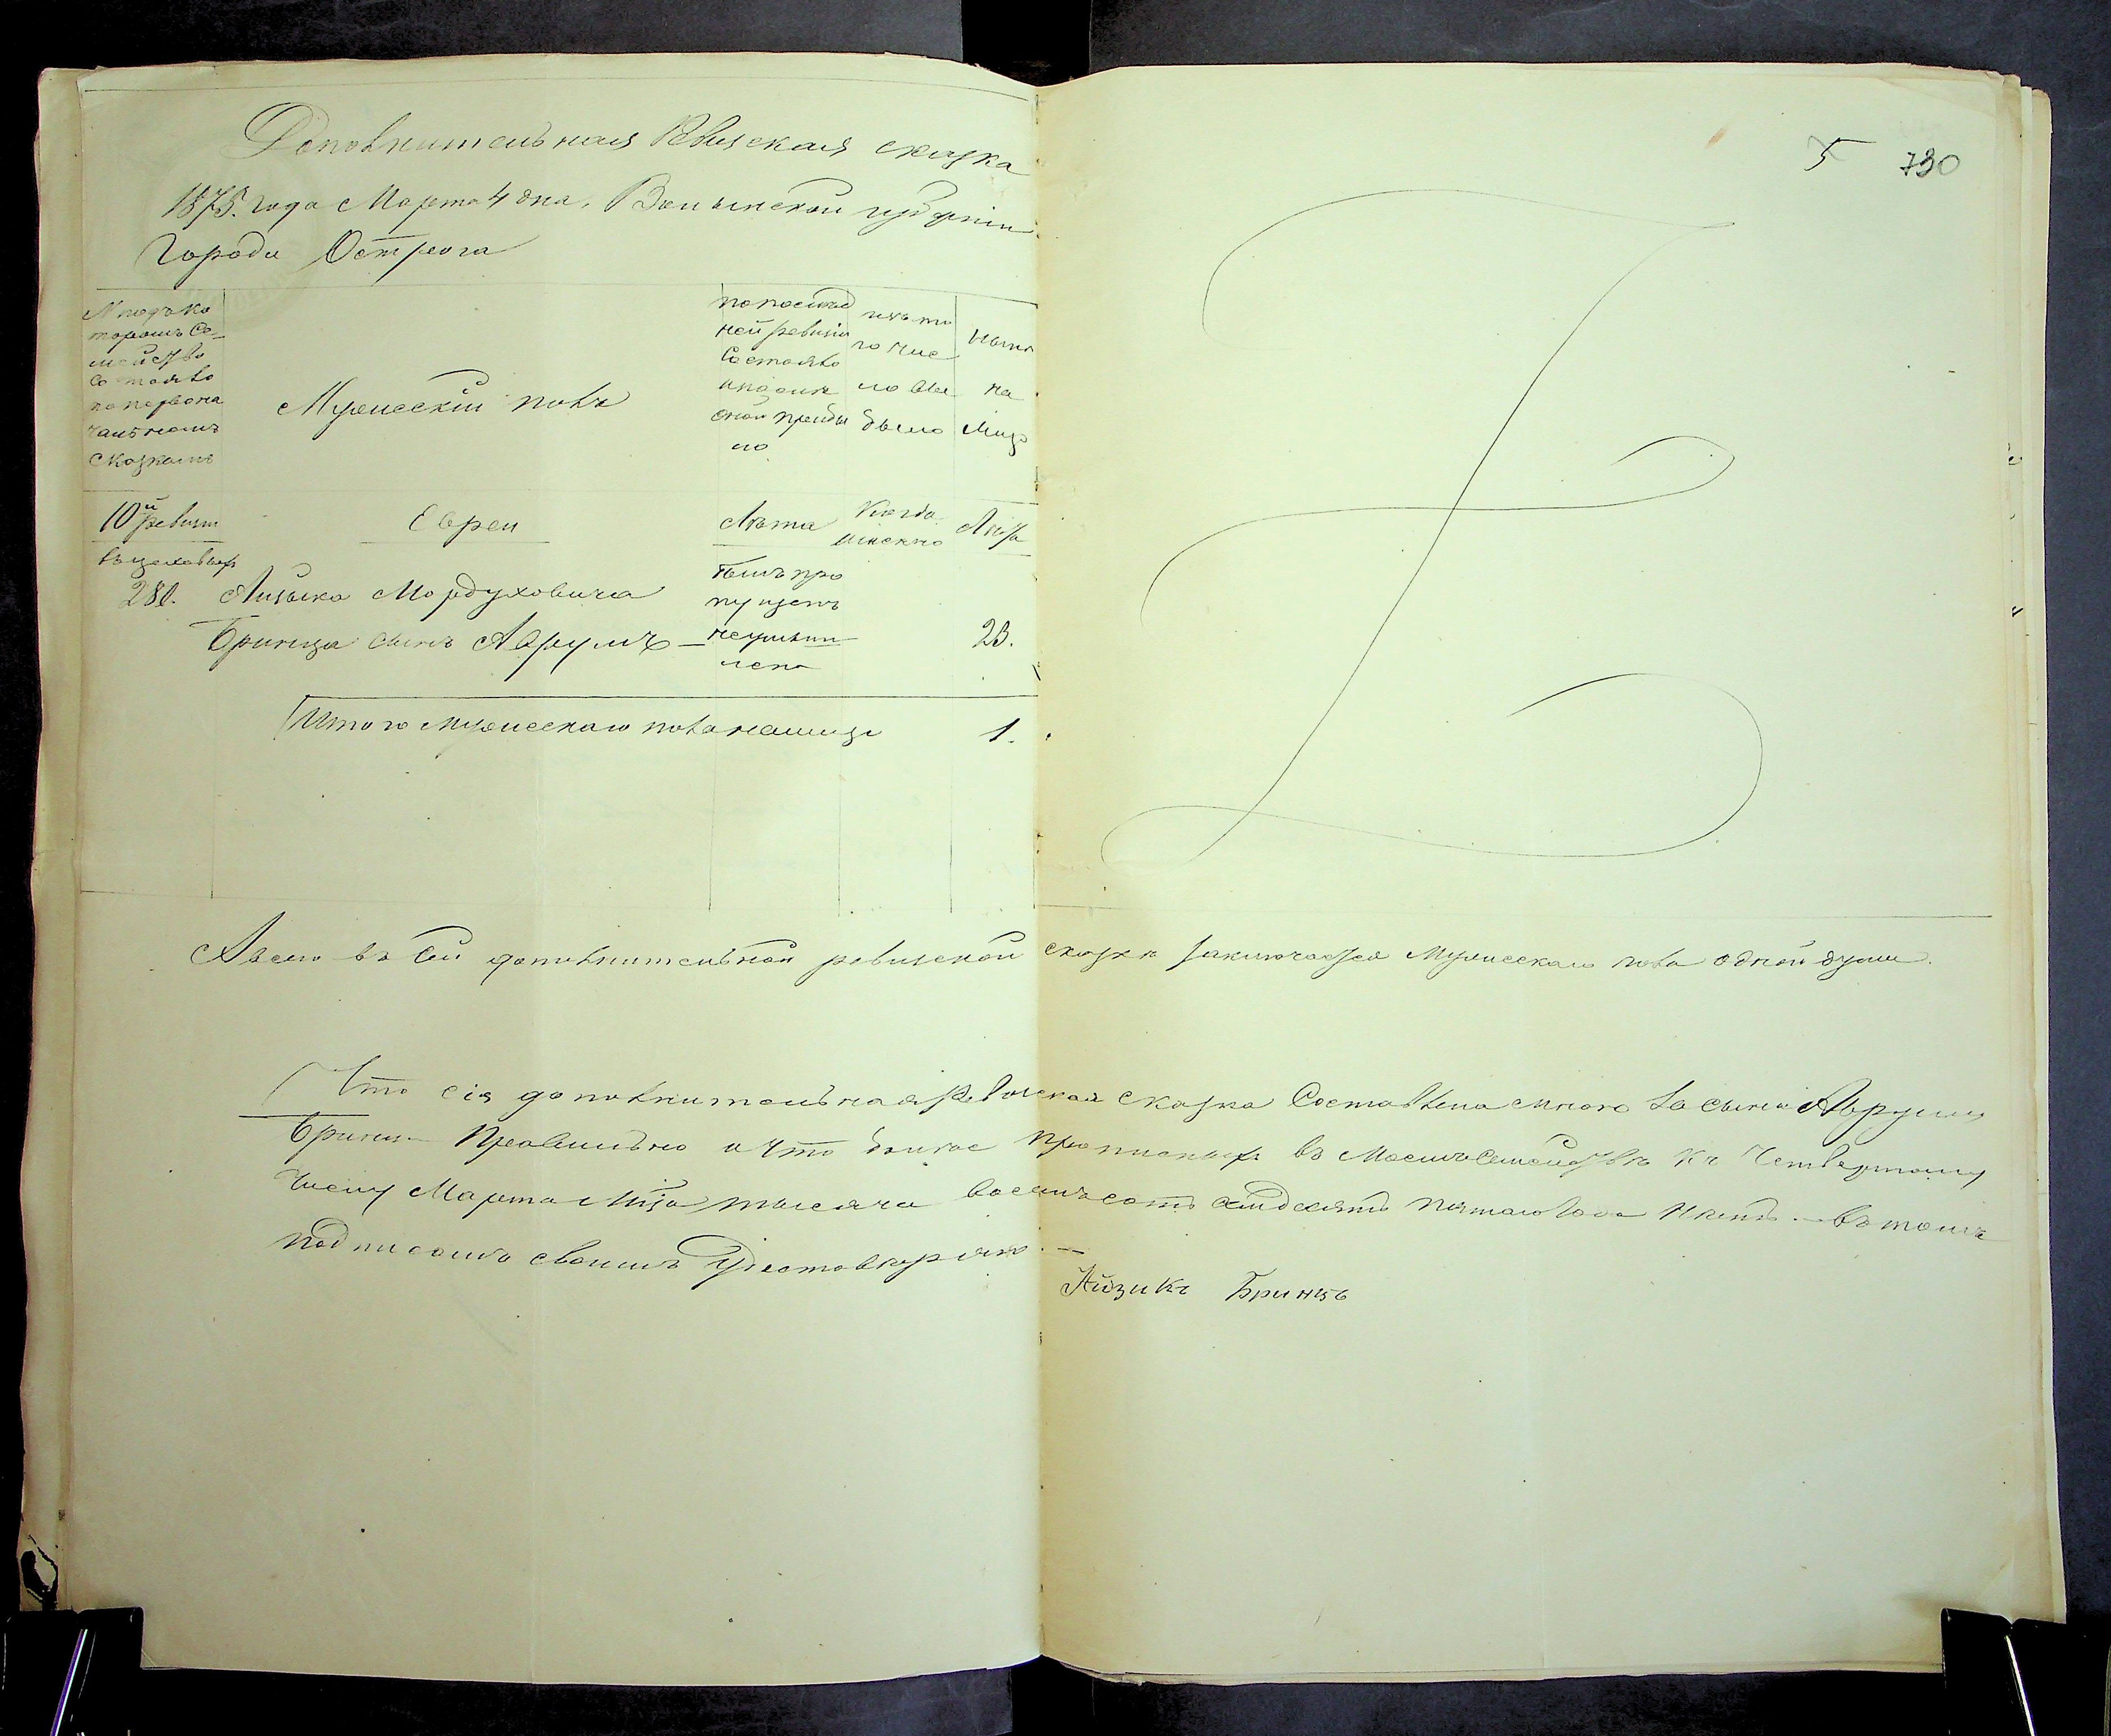 5 730
Дополнительная Ревизская сказка
1875. года Марта 4 дня, Волынской губерніи
Города Острога
№ подъ ко
торымъ Се-
мейство
Состояло
по первона
чальнымъ
Сказкамъ
Мужескій полъ
по послѣд
ней ревизіи
Состояло
и после
оной прибы
ло
изъ то
го чис
ла вы
было
Нынѣ
на
Лицо
10й ревизіи
Евреи
Лѣта
Когда
именно
Лѣта
280. Айзыка Мордуховича
Бринца сынъ Аврумъ —
былъ про
пущенъ
23.
Итого мужескаго пола налицо 1.
А всего въ сей дополнительной ревизской сказкѣ заключается Мужескаго пола одной души.
Что сія дополнительная Ревизская сказка Составлена мною за сына Аврума
Бринца Правильно и что болѣе прописныхъ въ Моемъ Семействѣ къ Четвертому
Числу Марта М-ца тысяча восемьсотъ семдесятъ пятаго Года Нѣтъ. — въ томъ
подписомъ своимъ Удостовѣряю. —
Айзикъ Бринцъ